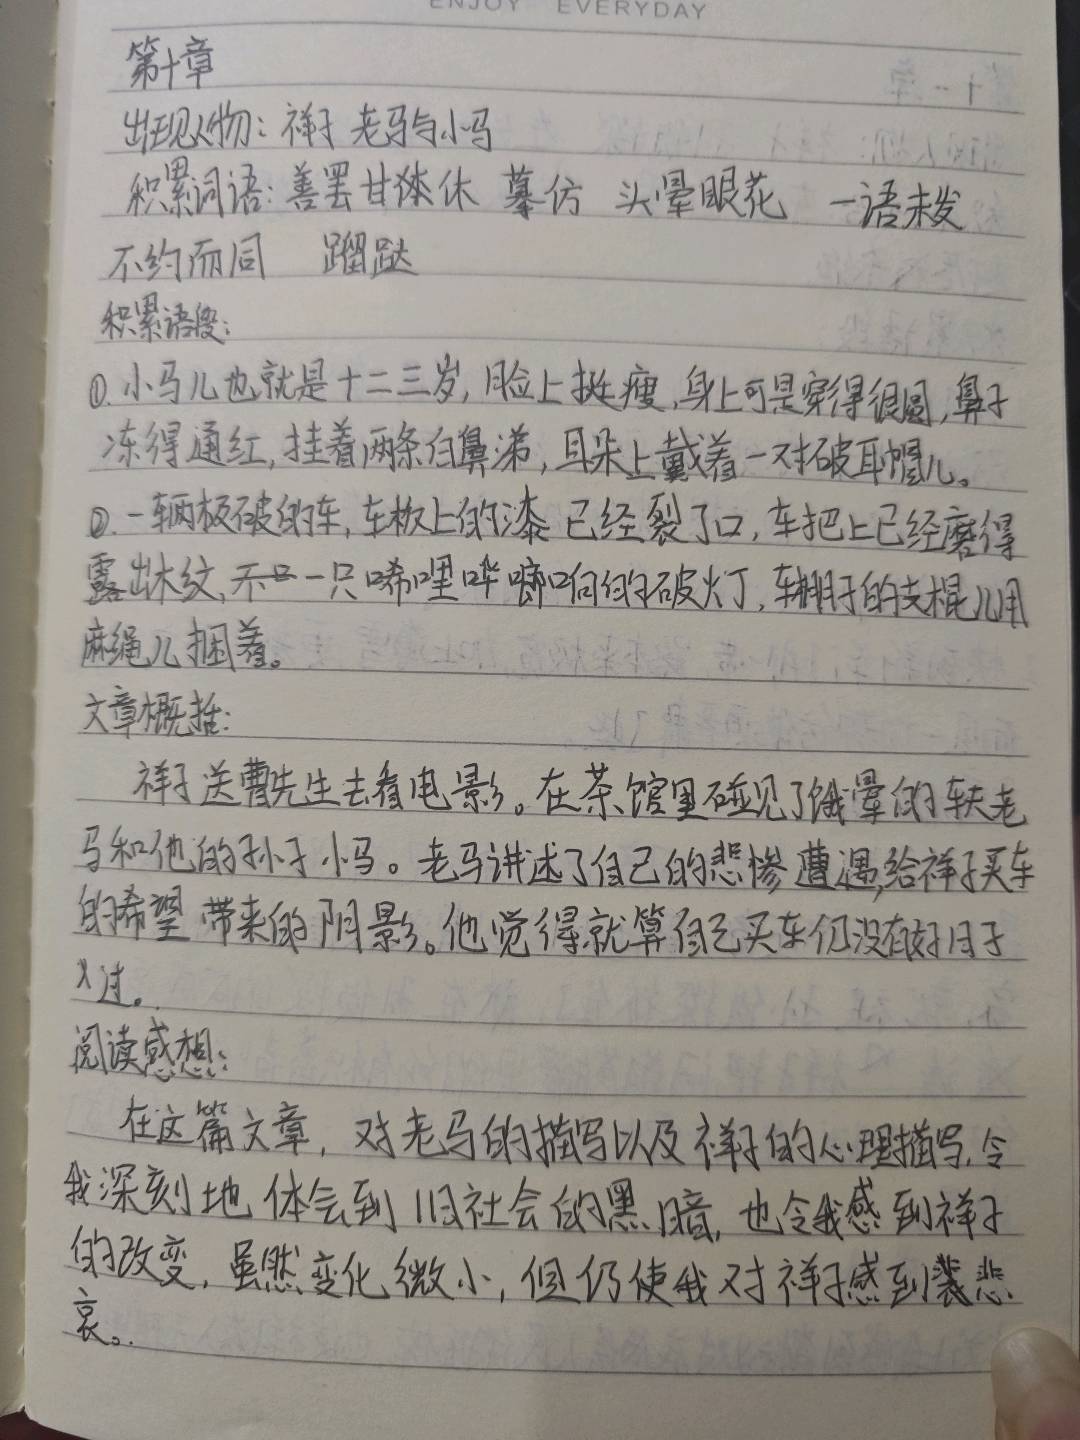 ENJOY EVERYDAY
第十章
出现人物：祥子 老马与小马
积累词语：善罢甘休 摹仿 头晕眼花 一语未发
不约而同 蹓跶
积累语段：
①.小马儿也就是十二三岁，脸上挺瘦，身上可是穿得很圆，鼻子
冻得通红，挂着两条白鼻涕，耳朵上戴着一对破耳帽儿。
②.一辆极破的车，车板上的漆已经裂了口，车把上已经磨得
露出木纹，一只唏哩哗啷响的破灯，车棚子的支棍儿用
麻绳儿捆着。
文章概括：
祥子送曹先生去看电影。在茶馆里碰见了饿晕的车夫老
马和他的孙子小马。老马讲述了自己的悲惨遭遇，给祥子买车
的希望带来的阴影。他觉得就算自己买车仍没有好日子
过。
阅读感想：
在这篇文章，对老马的描写以及祥子的心理描写，令
我深刻地体会到旧社会的黑暗，也令我感到祥子
的改变，虽然变化微小，但仍使我对祥子感到悲
哀。